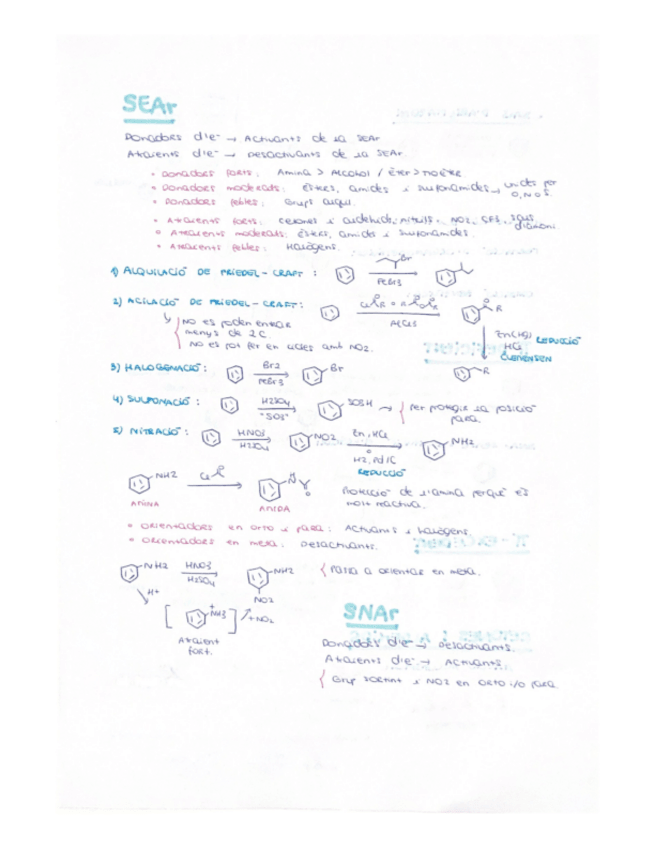 SEAr
Donadors d'e⁻ → Activants de la SEAr
Atraients d'e⁻ → Desactivants de la SEAr.
• Donadors forts: Amina > Alcohol / Èter > Tioèter
• Donadors moderats: Èsters, amides i sulfonamides → unides per O, N o S.
• Donadors febles: Grups alquil.
• Atraients forts: Cetones i aldehids, nitrils, NO2, CF3, sals diazoni
• Atraients moderats: Èsters, amides i sulfonamides.
• Atraients febles: Halògens.
1) ALQUILACIÓ DE FRIEDEL-CRAFT: Br FeBr3
2) ACILACIÓ DE FRIEDEL-CRAFT: AlCl3 O R
No es poden entrar menys de 2C.
No es pot fer en cicles amb NO2.
Zn(Hg) HCl REDUCCIÓ CLEMENSEN
R
3) HALOGENACIÓ: Br2 FeBr3 Br
4) SULFONACIÓ: H2SO4 "SO3" SO3H → Per protegir la posició para.
5) NITRACIÓ: HNO3 H2SO4 NO2 Zn, HCl o H2, Pd/C NH2
REDUCCIÓ
NH2 Cl O N O
AMINA AMIDA
Protecció de l'amina perquè és molt reactiva.
• Orientadors en orto i para: Activants i halògens.
• Orientadors en meta: Desactivants.
NH2 HNO3 H2SO4 NH2 NO2 Passa a orientar en meta.
H+ [ +NH3 ] +NO2
Atraient fort.
SNAr
Donadors d'e⁻ → Desactivants.
Atraients d'e⁻ → Activants.
Grup sortint i NO2 en orto i/o para.